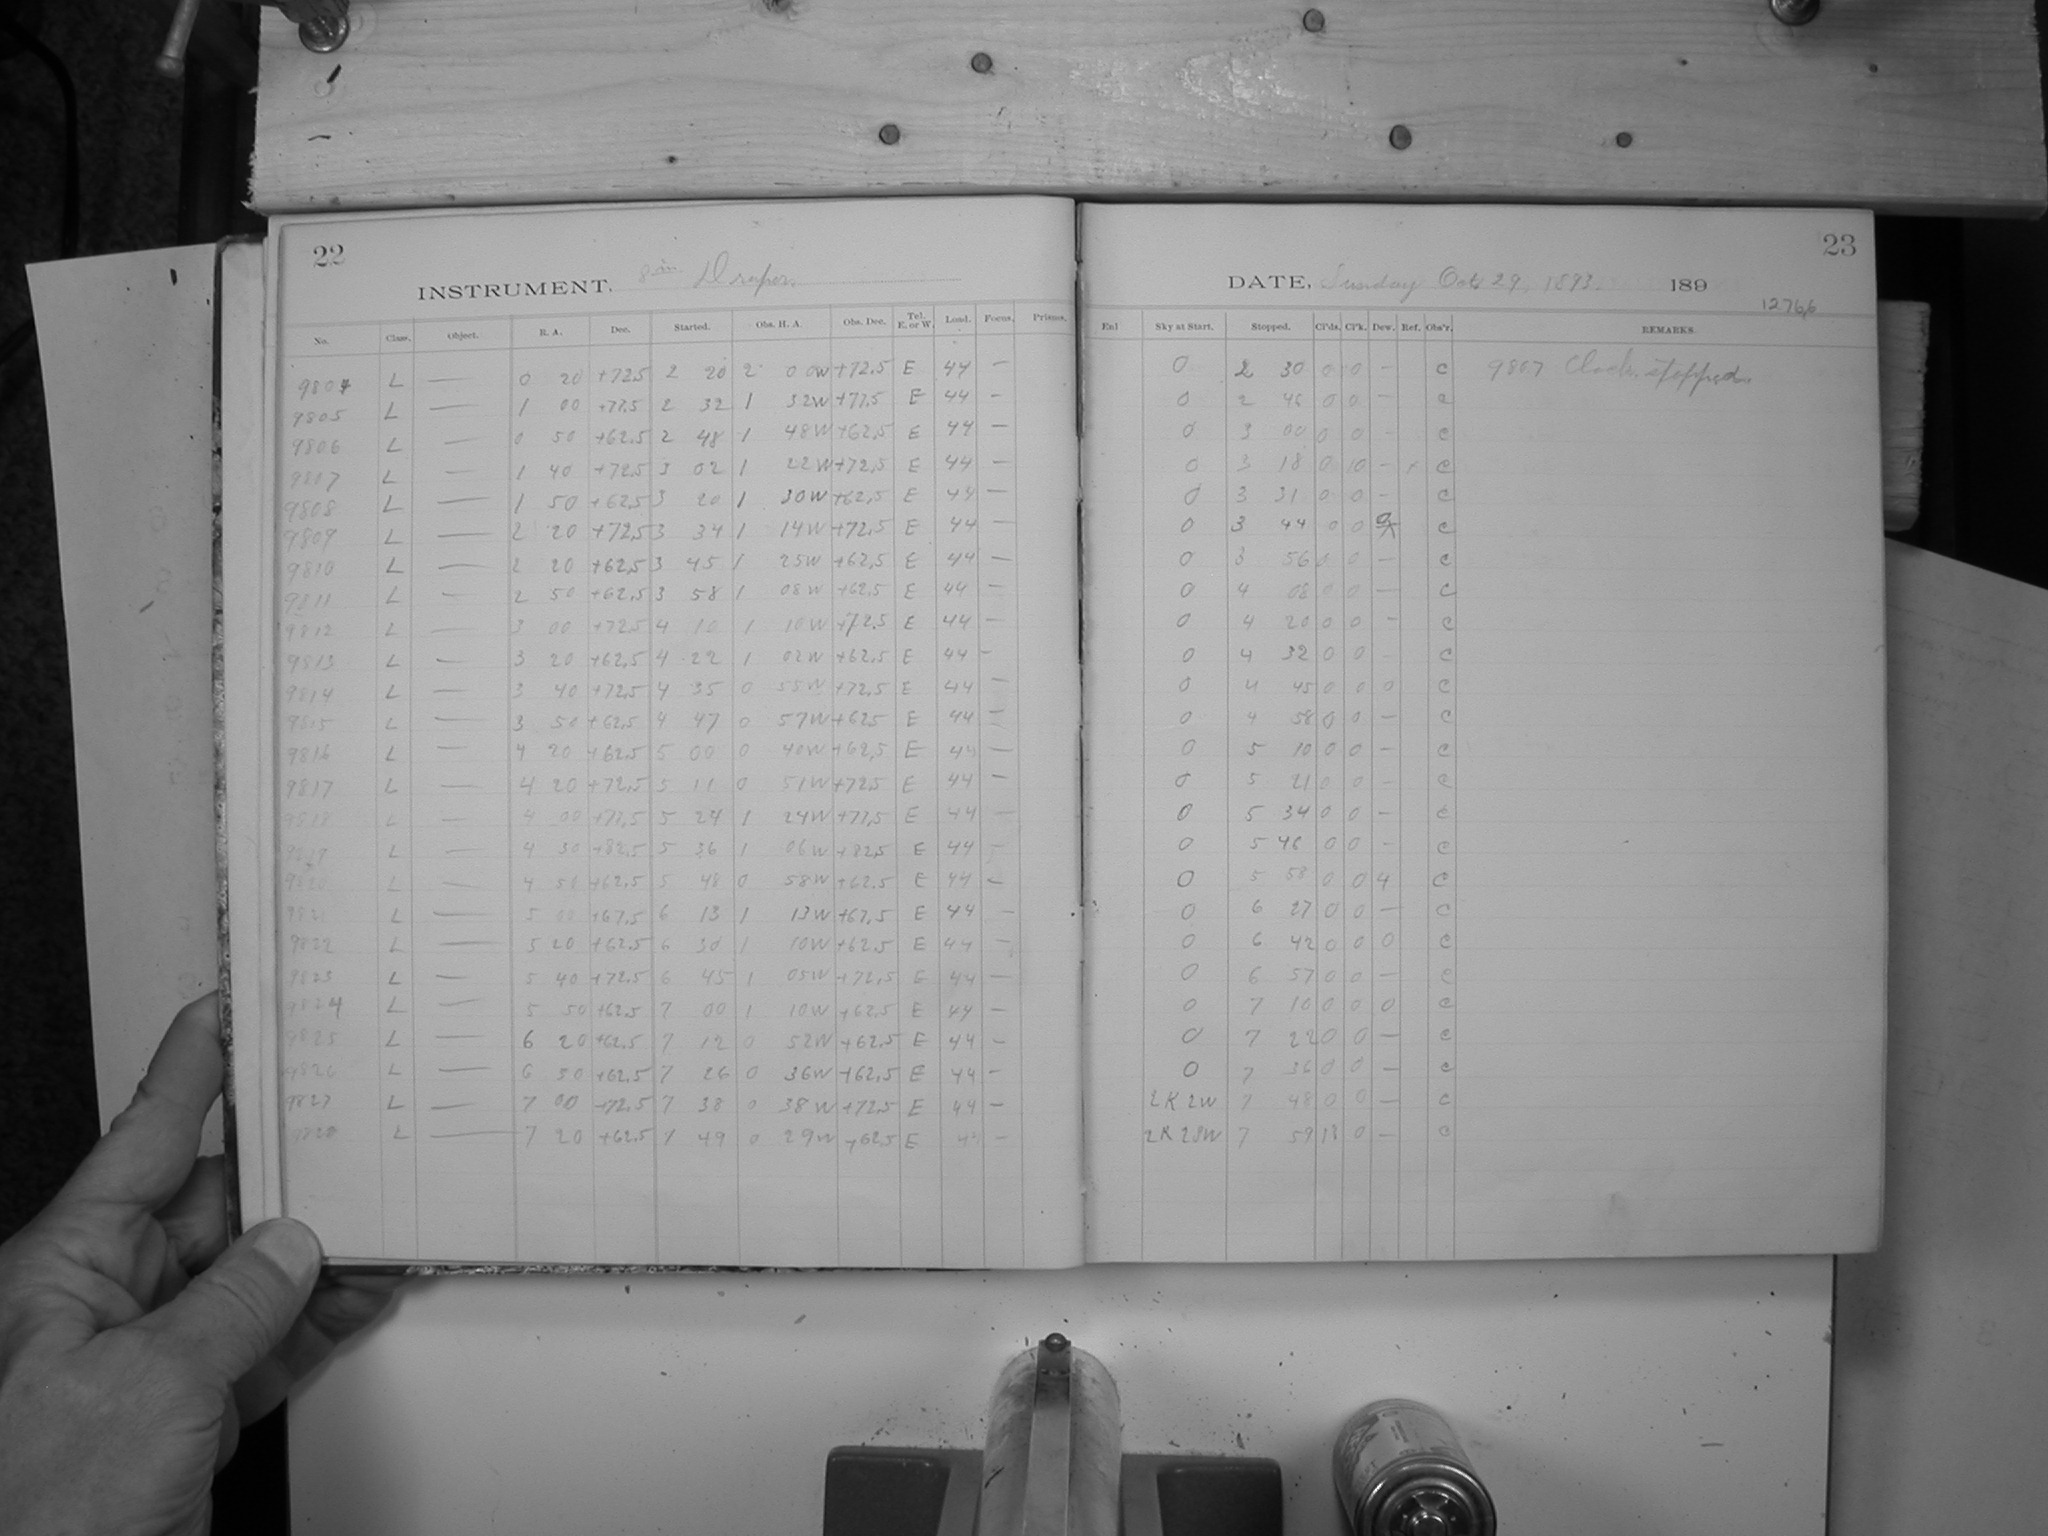 22
INSTRUMENT. 8 in. Draper.
No. Class. Object. R. A. Dec. Started. Obs. H. A. Obs. Dec. Tel. E. or W. Lond. Focus. Prisms.
9804 L — 0 20 +72.5 2 20 2 00W +72.5 E 44 —
9805 L — 1 00 +77.5 2 32 1 32W +77.5 E 44 —
9806 L — 0 50 +62.5 2 48 1 48W +62.5 E 44 —
9807 L — 1 40 +72.5 3 02 1 22W +72.5 E 44 —
9808 L — 1 50 +62.5 3 20 1 30W +62.5 E 44 —
9809 L — 2 20 +72.5 3 34 1 14W +72.5 E 44 —
9810 L — 2 20 +62.5 3 45 1 25W +62.5 E 44 —
9811 L — 2 50 +62.5 3 58 1 08W +62.5 E 44 —
9812 L — 3 00 +72.5 4 10 1 10W +72.5 E 44 —
9813 L — 3 20 +62.5 4 22 1 02W +62.5 E 44 —
9814 L — 3 40 +72.5 4 35 0 55W +72.5 E 44 —
9815 L — 3 50 +62.5 4 47 0 57W +62.5 E 44 —
9816 L — 4 20 +62.5 5 00 0 40W +62.5 E 44 —
9817 L — 4 20 +72.5 5 11 0 51W +72.5 E 44 —
9818 L — 4 00 +77.5 5 24 1 24W +77.5 E 44 —
9819 L — 4 30 +82.5 5 36 1 06W +82.5 E 44
9820 L — 4 50 +62.5 5 48 0 58W +62.5 E 44 —
9821 L — 5 00 +67.5 6 13 1 13W +67.5 E 44 —
9822 L — 5 20 +62.5 6 30 1 10W +62.5 E 44 —
9823 L — 5 40 +72.5 6 45 1 05W +72.5 E 44 —
9824 L — 5 50 +62.5 7 00 1 10W +62.5 E 44 —
9825 L — 6 20 +62.5 7 12 0 52W +62.5 E 44 —
9826 L — 6 50 +62.5 7 26 0 36W +62.5 E 44 —
9827 L — 7 00 +72.5 7 38 0 38W +72.5 E 44 —
9828 L — 7 20 +62.5 7 49 0 29W +62.5 E 44 —
23
DATE, Sunday Oct 29, 1893. 189
12766
Enl Sky at Start. Stopped. Cl'ds. Cl'k. Dew. Ref. Obs'r. REMARKS.
0 2 30 0 0 — C 9807 Clock stopped.
0 2 46 0 0 — C
0 3 00 0 0 - C
0 3 18 0 10 - r C
0 3 31 0 0 - C
0 3 44 0 0 C
0 3 56 0 0 — C
0 4 08 0 0 — C
0 4 20 0 0 - C
0 4 32 0 0 - C
0 4 45 0 0 0 C
0 4 58 0 0 — C
0 5 10 0 0 - C
0 5 21 0 0 — C
0 5 34 0 0 — C
0 5 46 0 0 — C
0 5 58 0 0 4 C
0 6 27 0 0 — C
0 6 42 0 0 0 C
0 6 57 0 0 — C
0 7 10 0 0 0 C
0 7 22 0 0 — C
0 7 36 0 0 — C
2K 2W 7 48 0 0 — C
2K 2SW 7 59 13 0 — C